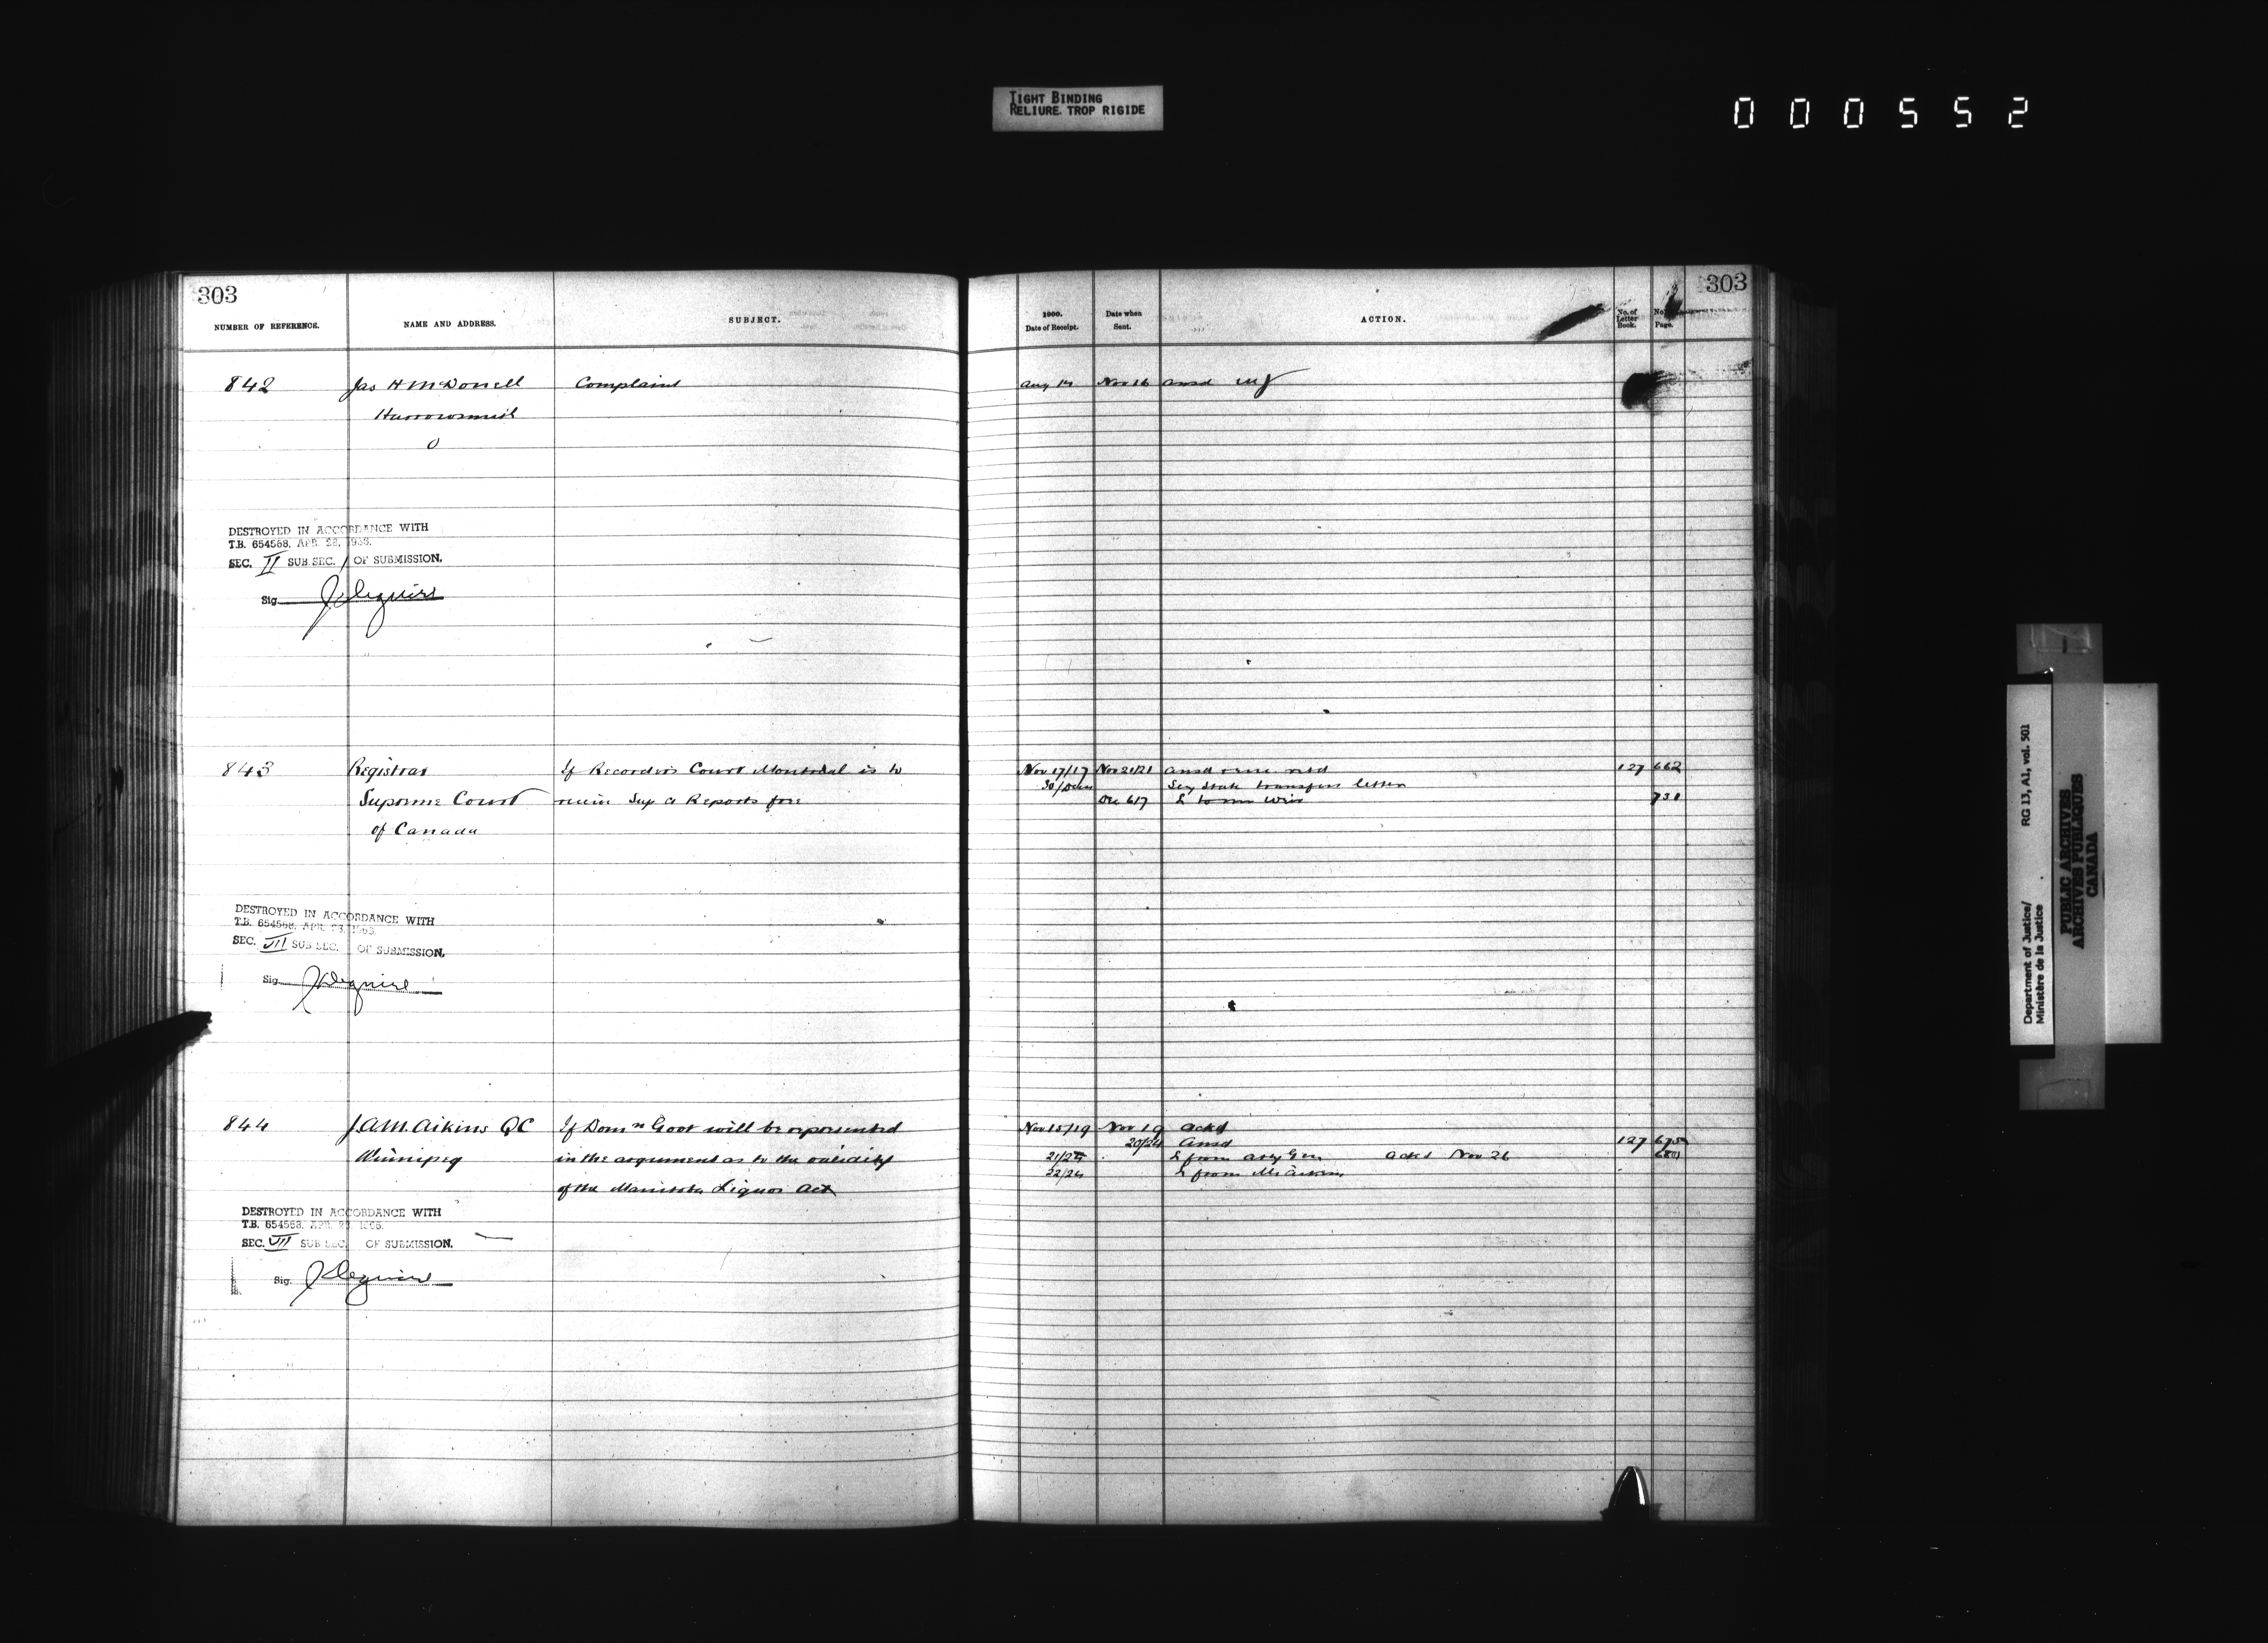 TIGHT BINDING
RELIURE TROP RIGIDE
000552
303
NUMBER OF REFERENCE.
NAME AND ADDRESS.
SUBJECT.
1900.
Date of Receipt.
Date when
Sent.
ACTION.
No. of
Letter
Book.
No.
Page.
303
842
Jas H McDonell
Complaint
Aug 14
Nov 16
ansd
Harrowsmith
O
DESTROYED IN ACCORDANCE WITH
T.B. 654568, APR. 28,
SEC. II SUB SEC. 1 OF SUBMISSION.
Sig.
843
Registrar
If Recorders Court Montreal is to
Nov 17/17
Nov 21/21
ansd
127
662
Supreme Court
Sup Ct Reports free
30/Dec
Sey State transfers letter
Dec 6/7
731
of Canada
DESTROYED IN ACCORDANCE WITH
T.B. 654568, APR.
SEC. VII SUB SEC. OF SUBMISSION.
Sig.
844
J.A.M. Aikins QC
If Domn Govt will be represented
Nov 15/19
Nov 19
ackd
20/24
Ansd
127
675
Winnipeg
in the argument as to the validity
L from Atty Gen
ackd Nov 26
22/24
L from Mr Aikins
of the Manitoba Liquor Act
DESTROYED IN ACCORDANCE WITH
T.B. 654568, APR.
SEC. VII SUB SEC. OF SUBMISSION.
Sig.
Department of Justice/
Ministère de la Justice
RG 13, A1, vol. 501
PUBLIC ARCHIVES
ARCHIVES PUBLIQUES
CANADA